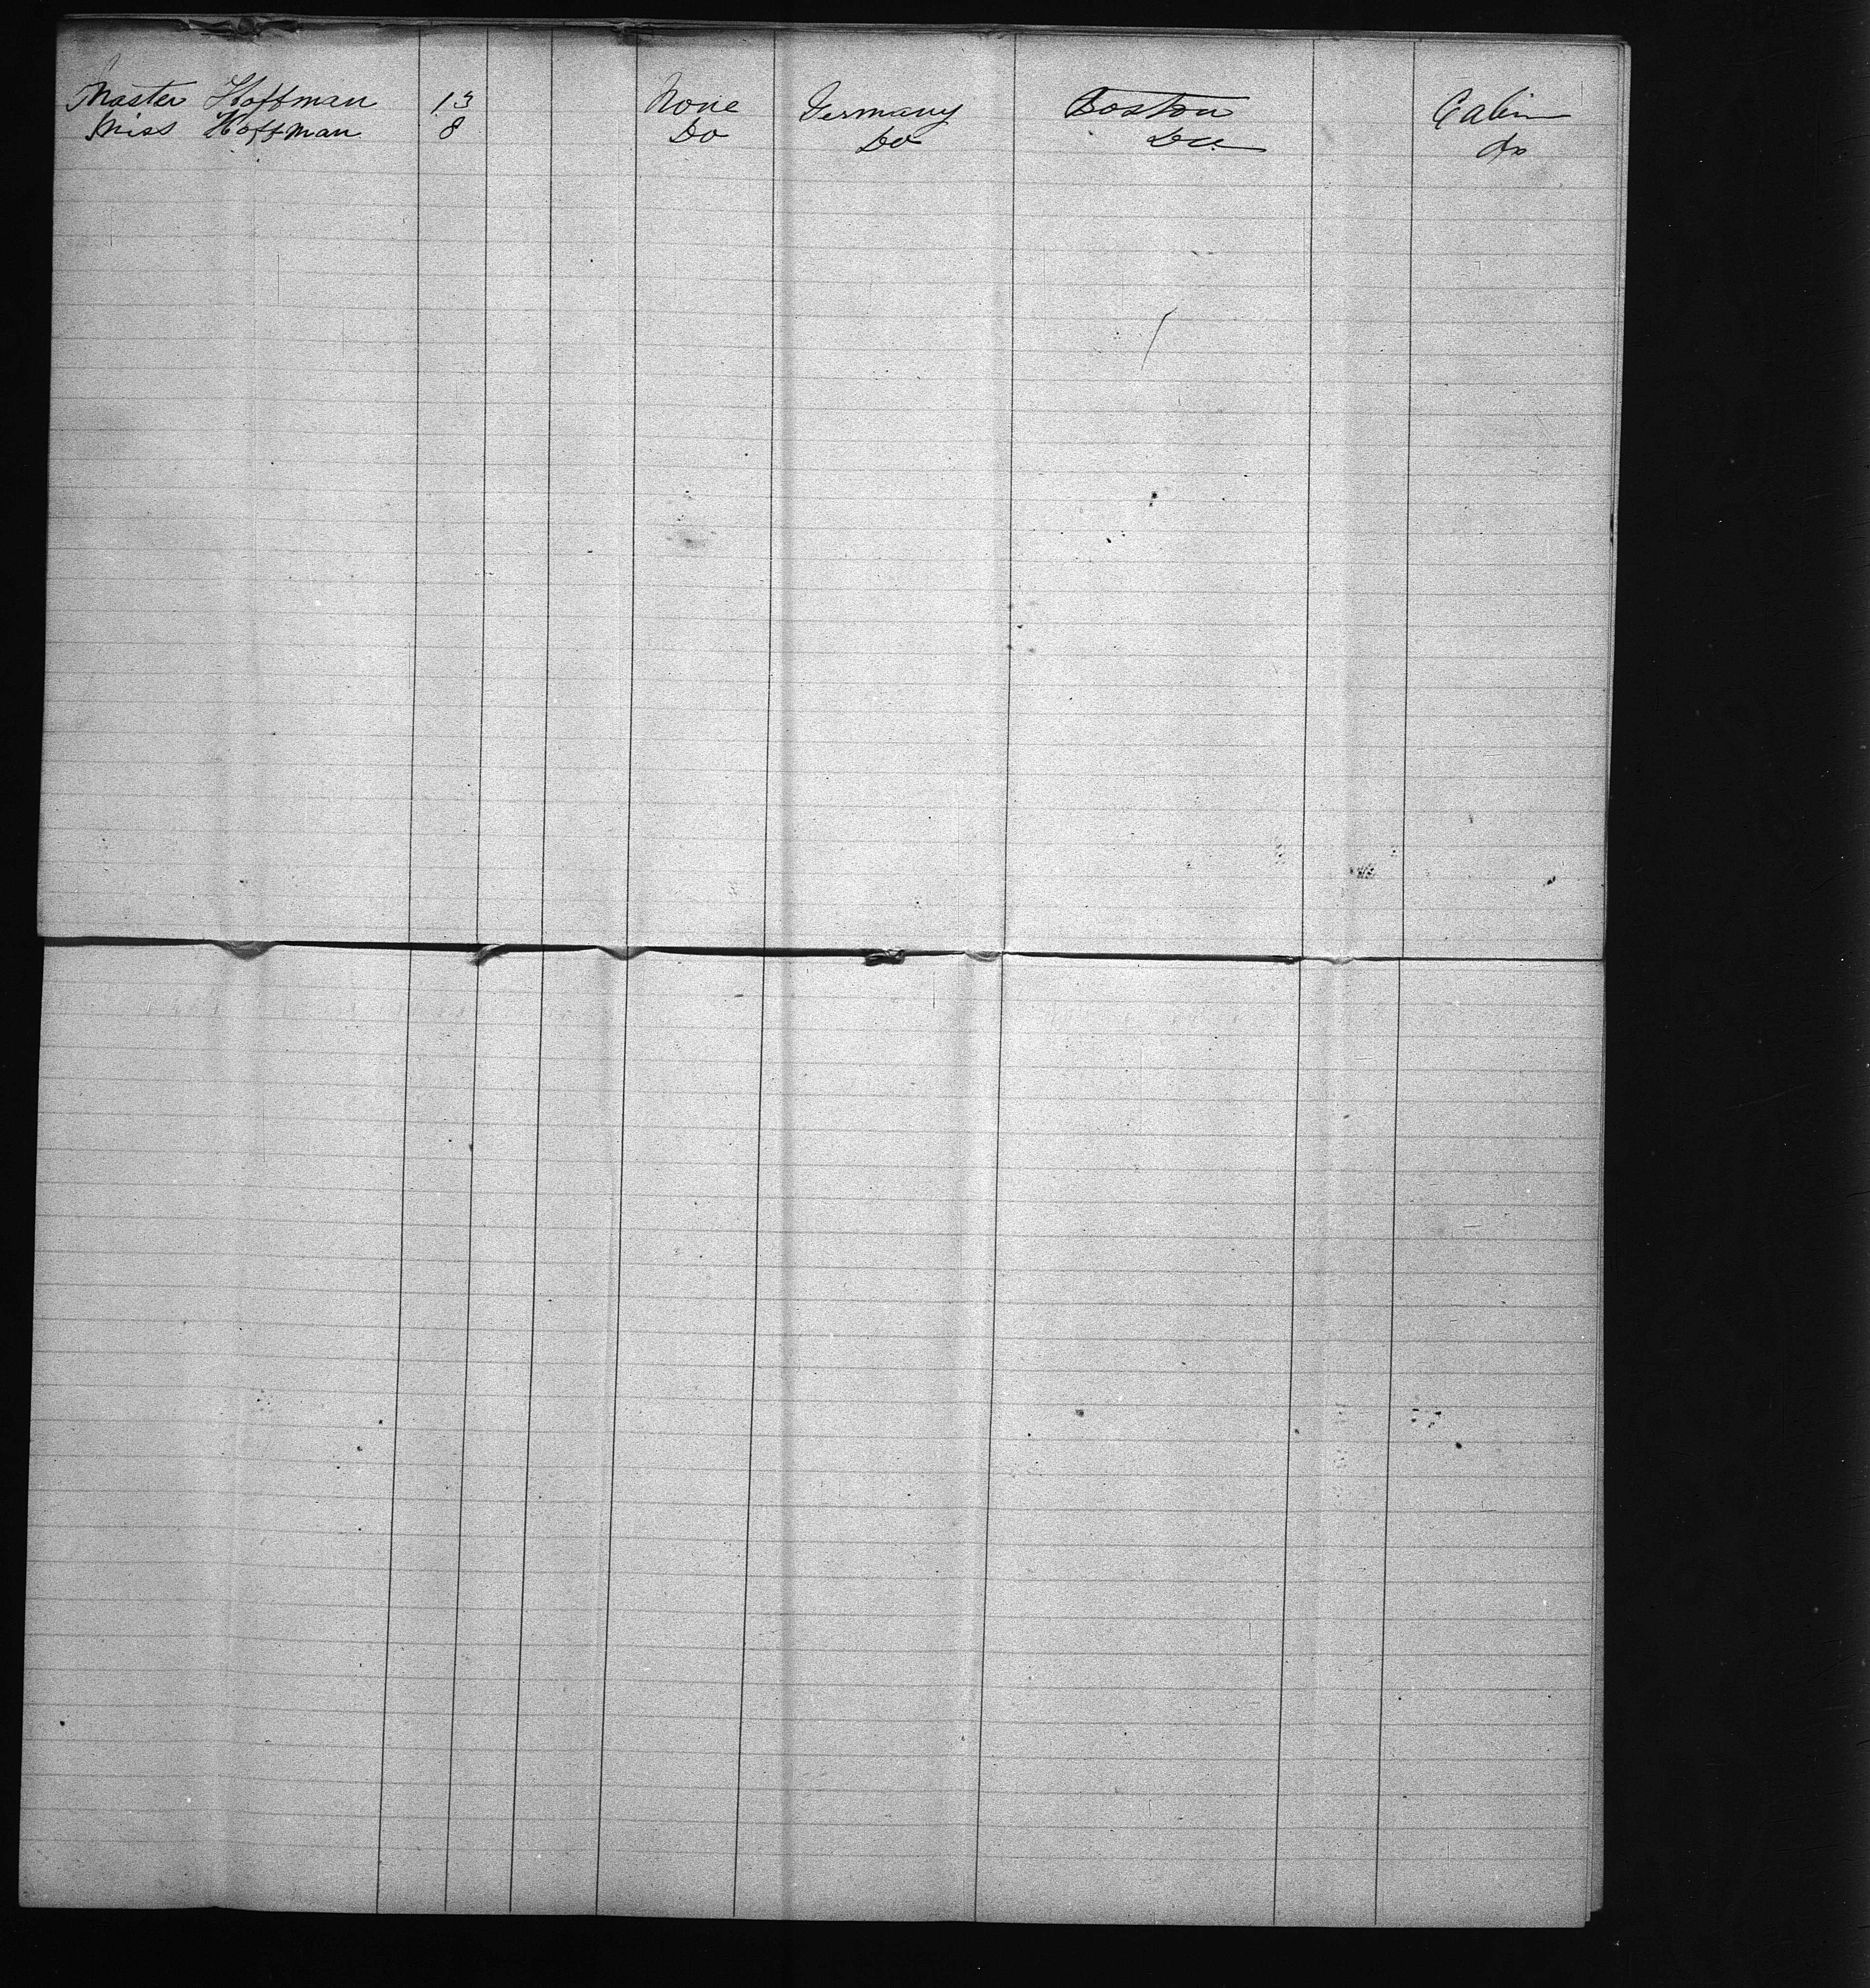 Master Hoffman 13 None Germany Boston Cabin
Miss Hoffman 8 Do Do Do do